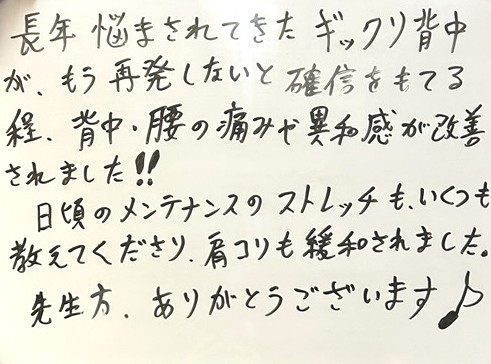 長年 悩まされてきた ギックリ背中
が、もう再発しないと確信をもてる
程、背中・腰の痛みや異和感が改善
されました!!
日頃のメンテナンスのストレッチも、いくつも
教えてくださり、肩コリも緩和されました。
先生方、ありがとうございます♪